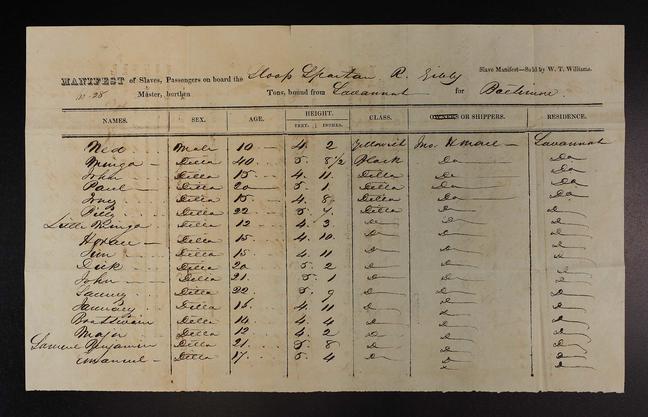 MANIFEST of Slaves, Passengers on board the Sloop Spartan R. Gibbs Slave Manifest—Sold by W. T. Williams.
Master, burthen Tons, bound from Savannah for Baltimore.
NAMES. SEX. AGE. HEIGHT. CLASS. OWNERS OR SHIPPERS. RESIDENCE.
FEET. INCHES.
Ned Male 10 4 2 Yellowish Savannah
Minga Ditto 40 5 8 1/2 Black Do Do
John Ditto 15 4 11 Ditto Do Do
Paul Ditto 20 5 1 Ditto Do Do
Ditto 15 4 8 Ditto Do Do
Ditto 22 5 7 Ditto Do Do
Little Minga Ditto 12 4 3 Do Do Do
Horace Ditto 15 4 10 Do Do Do
Jim Ditto 15 4 11 Do Do Do
Dick Ditto 20 5 2 Do Do Do
John Ditto 21 5 1 Do Do Do
Sammy Ditto 22 5 9 Do Do Do
January Ditto 16 4 11 Do Do Do
Boatswain Ditto 14 4 4 Do Do Do
Major Ditto 12 4 2 Do Do Do
Samuel Benjamin Ditto 21 5 8 Do Do Do
Emanuel Ditto 17 5 4 Do Do Do